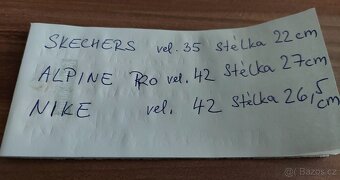 SKECHERS vel. 35 stélka 22 cm
ALPINE PRO vel. 42 stélka 27cm
NIKE vel. 42 stélka 26,5 cm
Bazos.cz